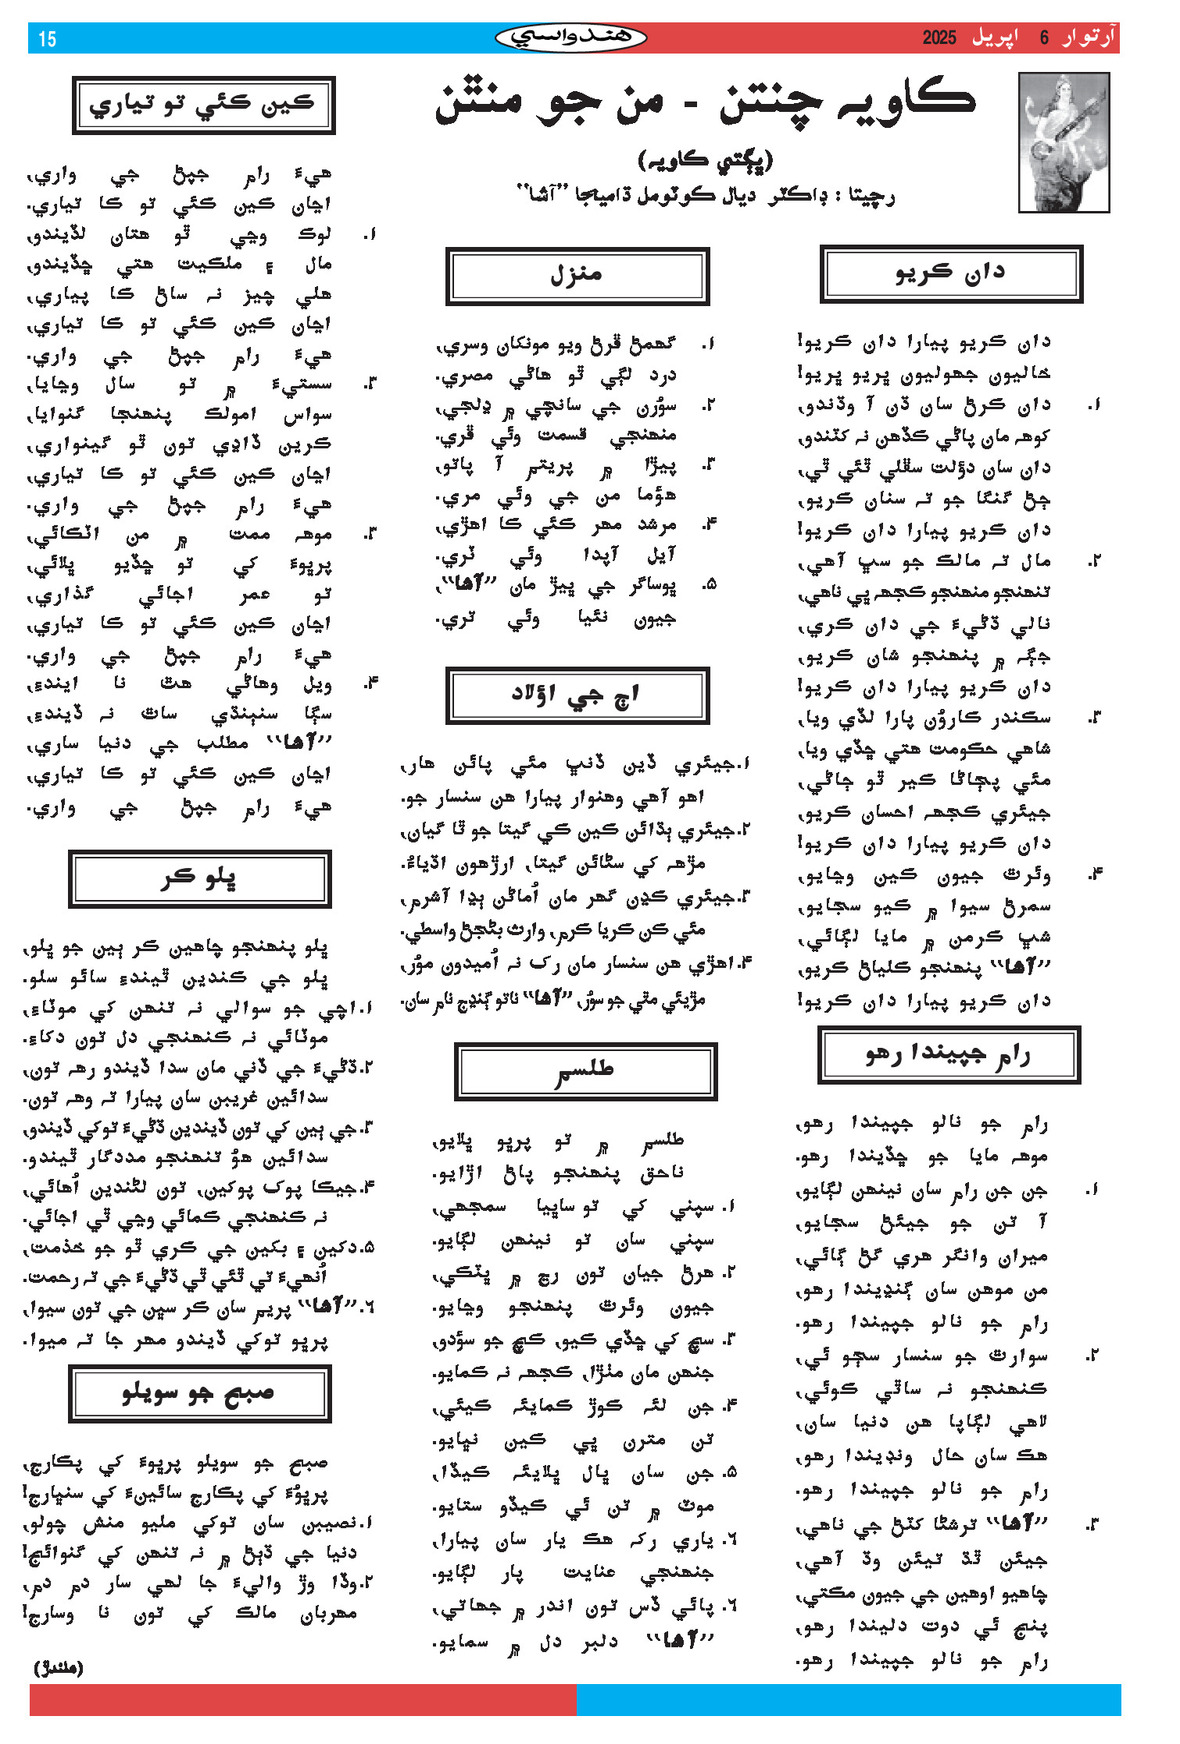 آرتوار 6 اپريل 2025
هندواسي
15
ڪاويہ چنتن - من جو منٿن
(ڀڳتي ڪاويہ)
رچيتا : ڊاڪٽر ديال ڪوٽومل ڌاميڄا ”آشا“
دان ڪريو
دان ڪريو پيارا دان ڪريو!
خاليون جھوليون ڀريو ڀريو!
۱. دان ڪرڻ سان ڌن آ وڌندو،
کوهہ مان پاڻي ڪڏهن نہ کٽندو،
دان سان دؤلت سڦلي ٿئي ٿي،
ڄڻ گنگا جو تہ سنان ڪريو،
دان ڪريو پيارا دان ڪريو!
۲. مال تہ مالڪ جو سڀ آهي،
تنھنجو منھنجو ڪجھہ ڀي ناهي،
نالي ڌڻيءَ جي دان ڪري،
جڳہ ۾ پنھنجو شان ڪريو،
دان ڪريو پيارا دان ڪريو!
۳. سڪندر ڪارُون پارا لڏي ويا،
شاهي حڪومت هتي ڇڏي ويا،
مئي پڄاڻا ڪير ٿو ڄاڻي،
جيئري ڪجھہ احسان ڪريو،
دان ڪريو پيارا دان ڪريو!
۴. وئرٿ جيون ڪين وڃايو،
سمرڻ سيوا ۾ کيو سجايو،
شڀ ڪرمن ۾ مايا لڳائي،
”آشا“ پنھنجو ڪلياڻ ڪريو،
دان ڪريو پيارا دان ڪريو!
رام جپيندا رهو
رام جو نالو جپيندا رهو،
موهہ مايا جو ڇڏيندا رهو.
۱. جن جن رام سان نينھن لڳايو،
آ تن جو جيئڻ سجايو،
ميران وانگر هري گڻ ڳائي،
من موهن سان ڳنڍيندا رهو،
رام جو نالو جپيندا رهو.
۲. سوارٿ جو سنسار سڄو ئي،
ڪنھنجو نہ ساٿي ڪوئي،
لاهي لڳاپا هن دنيا سان،
هڪ سان حال ونڊيندا رهو،
رام جو نالو جپيندا رهو.
۳. ”آشا“ ترشڻا کٽڻ جي ناهي،
جيئن ٿڌ تيئن وڌ آهي،
چاهيو اوهين جي جيون مڪتي،
پنج ئي دوت دليندا رهو،
رام جو نالو جپيندا رهو.
منزل
۱. گھمڻ ڦرڻ ويو مونکان وسري،
درد لڳي ٿو هاڻي مصري.
۲. سوُرن جي سانچي ۾ ڍلجي،
منھنجي قسمت وئي ڦري.
۳. پيڙا ۾ پريتم آ پاتو،
هؤما من جي وئي مري.
۴. مرشد مھر ڪئي ڪا اهڙي،
آيل آپدا وئي ٽري.
۵. ڀوساگر جي ڀيڙ مان ”آشا“،
جيون نئيا وئي تري.
اڄ جي اؤلاد
۱.جيئري ڏين ڏنڀ مئي پائن هار،
اهو آهي وهنوار پيارا هن سنسار جو.
۲.جيئري ٻڌائن ڪين ڪي گيتا جو ٿا گيان،
مڙهہ کي سڻائن گيتا، ارڙهون اڌياءُ.
۳.جيئري ڪڍن گھر مان اُماڻن ٻڍا آشرم،
مئي ڪن ڪريا ڪرم، وارث بڻجڻ واسطي.
۴.اهڙي هن سنسار مان رک نہ اُميدون موُر،
مڙيئي مٿي جو سوُر، ”آشا“ ناتو ڳنڍج نام سان.
طلسم
طلسم ۾ تو پرڀو ڀلايو،
ناحق پنھنجو پاڻ اڙايو.
۱. سپني کي تو ساڀيا سمجھي،
سپني سان تو نينھن لڳايو.
۲. هرڻ جيان تون رڃ ۾ ڀٽڪي،
جيون وئرٿ پنھنجو وڃايو.
۳. سچ کي ڇڏي ڪيو، ڪچ جو سؤدو،
جنھن مان مٺڙا، ڪجھہ نہ ڪمايو.
۴. جن لئہ ڪوڙ ڪمايئہ ڪيئي،
تن مترن ڀي ڪين نڀايو.
۵. جن سان ڀال ڀلايئہ ڪيڏا،
موٽ ۾ تن ئي ڪيڏو ستايو.
۶. ياري رکہ هڪ يار سان پيارا،
جنھنجي عنايت پار لڳايو.
۶. پائي ڏس تون اندر ۾ جھاتي،
”آشا“ دلبر دل ۾ سمايو.
ڪين ڪئي تو تياري
هيءَ رام جپڻ جي واري،
اڃان ڪين ڪئي تو ڪا تياري.
۱. لوڪ وڃي ٿو هتان لڏيندو،
مال ۽ ملڪيت هتي ڇڏيندو،
هلي چيز نہ ساڻ ڪا پياري،
اڃان ڪين ڪئي تو ڪا تياري،
هيءَ رام جپڻ جي واري.
۲. سستيءَ ۾ تو سال وڃايا،
سواس امولڪ پنھنجا گنوايا،
ڪرين ڏاڍي تون ٿو گينواري،
اڃان ڪين ڪئي تو ڪا تياري،
هيءَ رام جپڻ جي واري.
۳. موهہ ممت ۾ من اٽڪائي،
پرڀوءَ کي تو ڇڏيو ڀلائي،
تو عمر اجائي گذاري،
اڃان ڪين ڪئي تو ڪا تياري،
هيءَ رام جپڻ جي واري.
۴. ويل وهاڻي هٿ نا ايندءِ،
سڳا سنٻنڌي ساٿ نہ ڏيندءِ،
”آشا“ مطلب جي دنيا ساري،
اڃان ڪين ڪئي تو ڪا تياري،
هيءَ رام جپڻ جي واري.
ڀلو ڪر
ڀلو پنھنجو چاهين ڪر ٻين جو ڀلو،
ڀلو جي ڪندين ٿيندءِ سائو سلو.
۱.اچي جو سوالي نہ تنھن کي موٽاءِ،
موٽائي نہ ڪنھنجي دل تون دکاءِ.
۲.ڌڻيءَ جي ڏني مان سدا ڏيندو رهہ تون،
سدائين غريبن سان پيارا تہ وهہ تون.
۳.جي ٻين کي تون ڏيندين ڌڻيءَ توکي ڏيندو،
سدائين هوُ تنھنجو مددگار ٿيندو.
۴.جيڪا پوک پوکين، تون لڻندين اُهائي،
نہ ڪنھنجي ڪمائي وڃي ٿي اجائي.
۵.دکين ۽ بکين جي ڪري ٿو جو خذمت،
اُنھيءَ تي ٿئي ٿي ڌڻيءَ جي تہ رحمت.
۶.”آشا“ پريم سان ڪر سڀن جي تون سيوا،
پرڀو توکي ڏيندو مھر جا تہ ميوا.
صبح جو سويلو
صبح جو سويلو پرڀوءَ کي پڪارج،
پرڀوُءَ کي پڪارج سائينءَ کي سنڀارج!
۱.نصيبن سان توکي مليو منش چولو،
دنيا جي ڏٻڻ ۾ نہ تنھن کي گنوائج!
۲.وڏا وڙ واليءَ جا لھي سار دم دم،
مھربان مالڪ کي تون نا وسارج!
(هلندڙ)